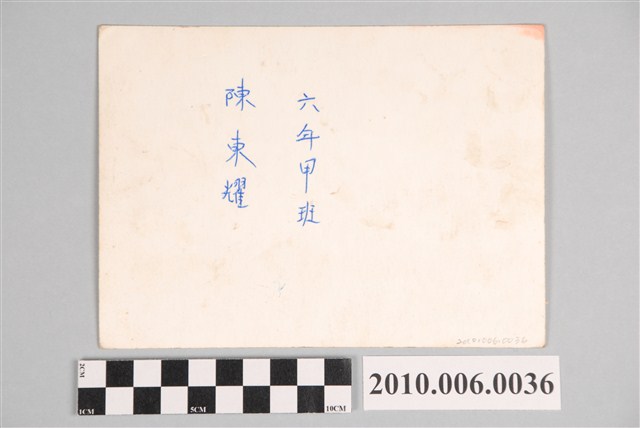 六年甲班
陳東耀
2010.006.0036
2CM
1CM
5CM
10CM
2010.006.0036